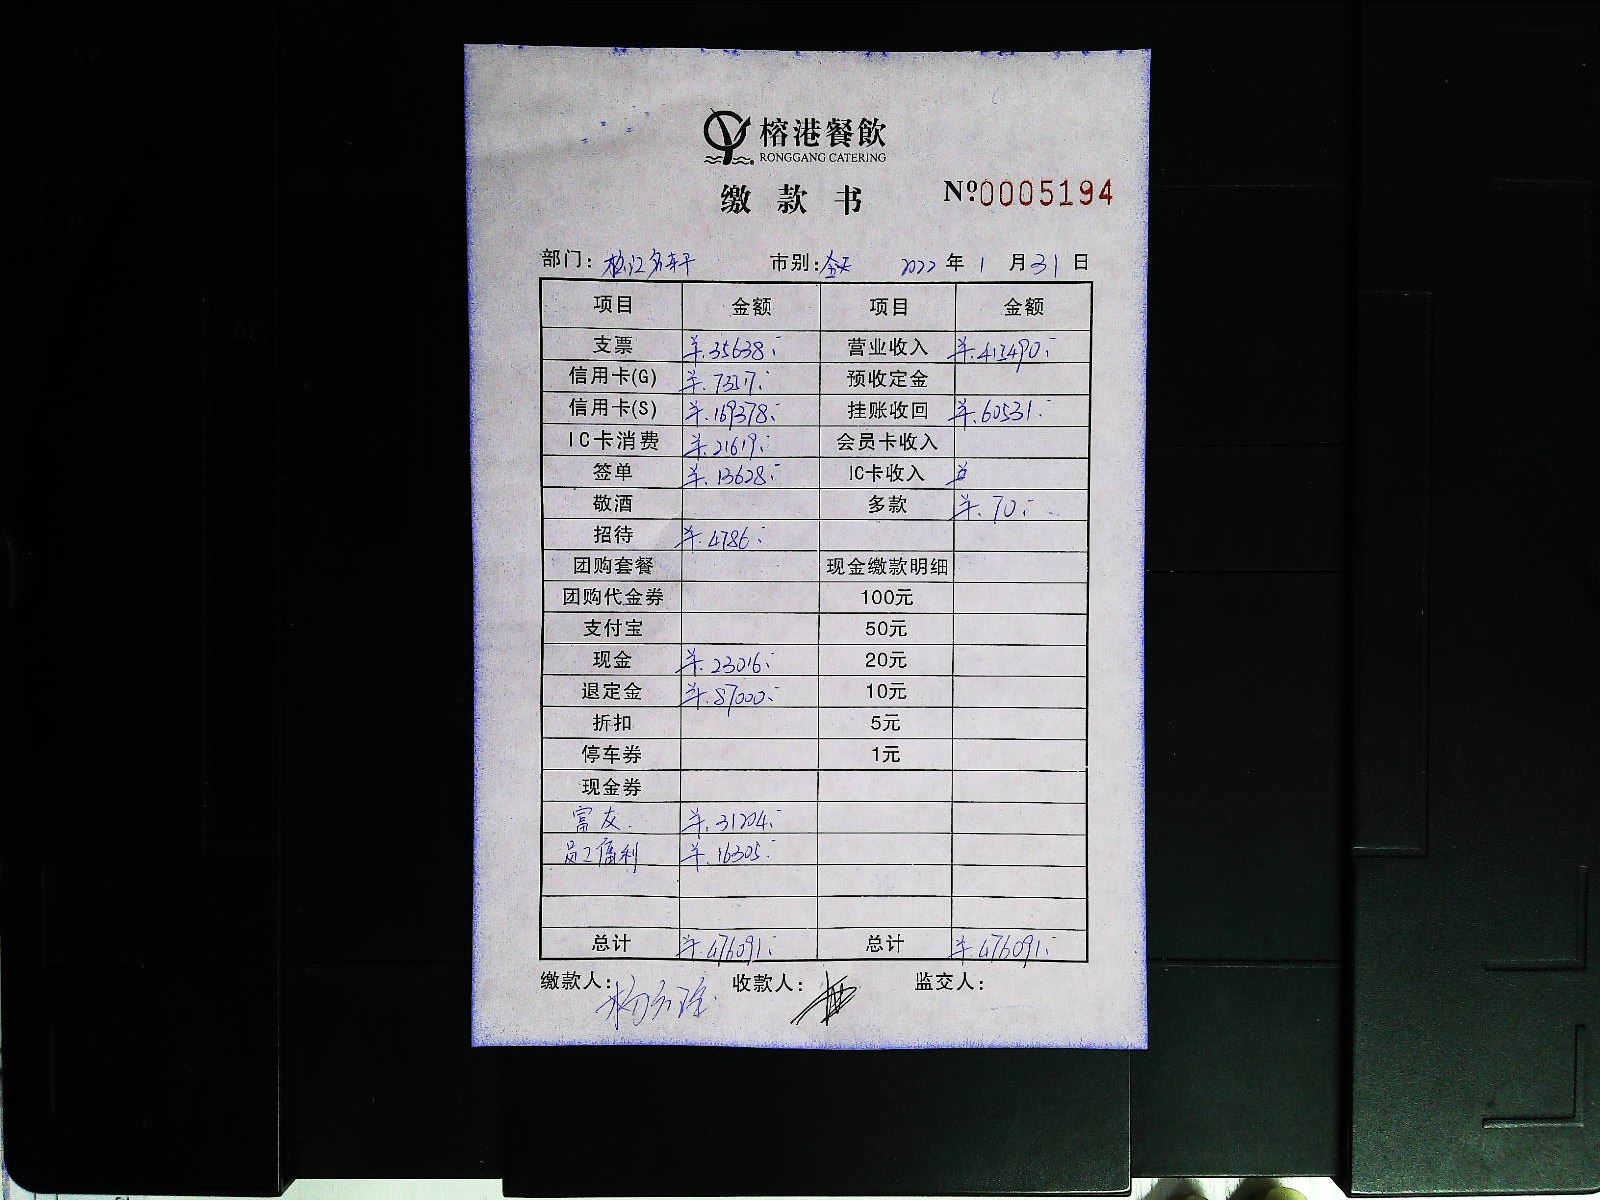 榕港餐飲
RONGGANG CATERING
缴款书 Nº0005194
部门: 松江名轩 市别: 全天 2022年1月31日
项目 金额 项目 金额
支票 ¥.35638.- 营业收入 ¥.415490.-
信用卡(G) ¥.73517.- 预收定金
信用卡(S) ¥.169378.- 挂账收回 ¥.60531.-
IC卡消费 ¥.21619.- 会员卡收入
签单 ¥.13628.- IC卡收入
敬酒 多款 ¥.70.-
招待 ¥.4786.-
团购套餐 现金缴款明细
团购代金券 100元
支付宝 50元
现金 ¥.23016.- 20元
退定金 ¥.87000.- 10元
折扣 5元
停车券 1元
现金券
富友 ¥.31204.-
员工福利 ¥.16305.-
总计 ¥.476091.- 总计 ¥.476091.-
缴款人: 收款人: 监交人: